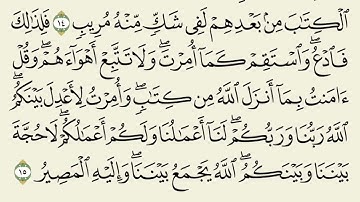 ٱلۡكِتَٰبَ مِنۢ بَعۡدِهِمۡ لَفِي شَكّٖ مِّنۡهُ مُرِيبٖ ١٤ فَلِذَٰلِكَ
فَٱدۡعُۖ وَٱسۡتَقِمۡ كَمَآ أُمِرۡتَۖ وَلَا تَتَّبِعۡ أَهۡوَآءَهُمۡۖ وَقُلۡ
ءَامَنتُ بِمَآ أَنزَلَ ٱللَّهُ مِن كِتَٰبٖۖ وَأُمِرۡتُ لِأَعۡدِلَ بَيۡنَكُمُۖ
ٱللَّهُ رَبُّنَا وَرَبُّكُمۡۖ لَنَآ أَعۡمَٰلُنَا وَلَكُمۡ أَعۡمَٰلُكُمۡۖ لَا حُجَّةَ
بَيۡنَنَا وَبَيۡنَكُمُۖ ٱللَّهُ يَجۡمَعُ بَيۡنَنَاۖ وَإِلَيۡهِ ٱلۡمَصِيرُ ١٥